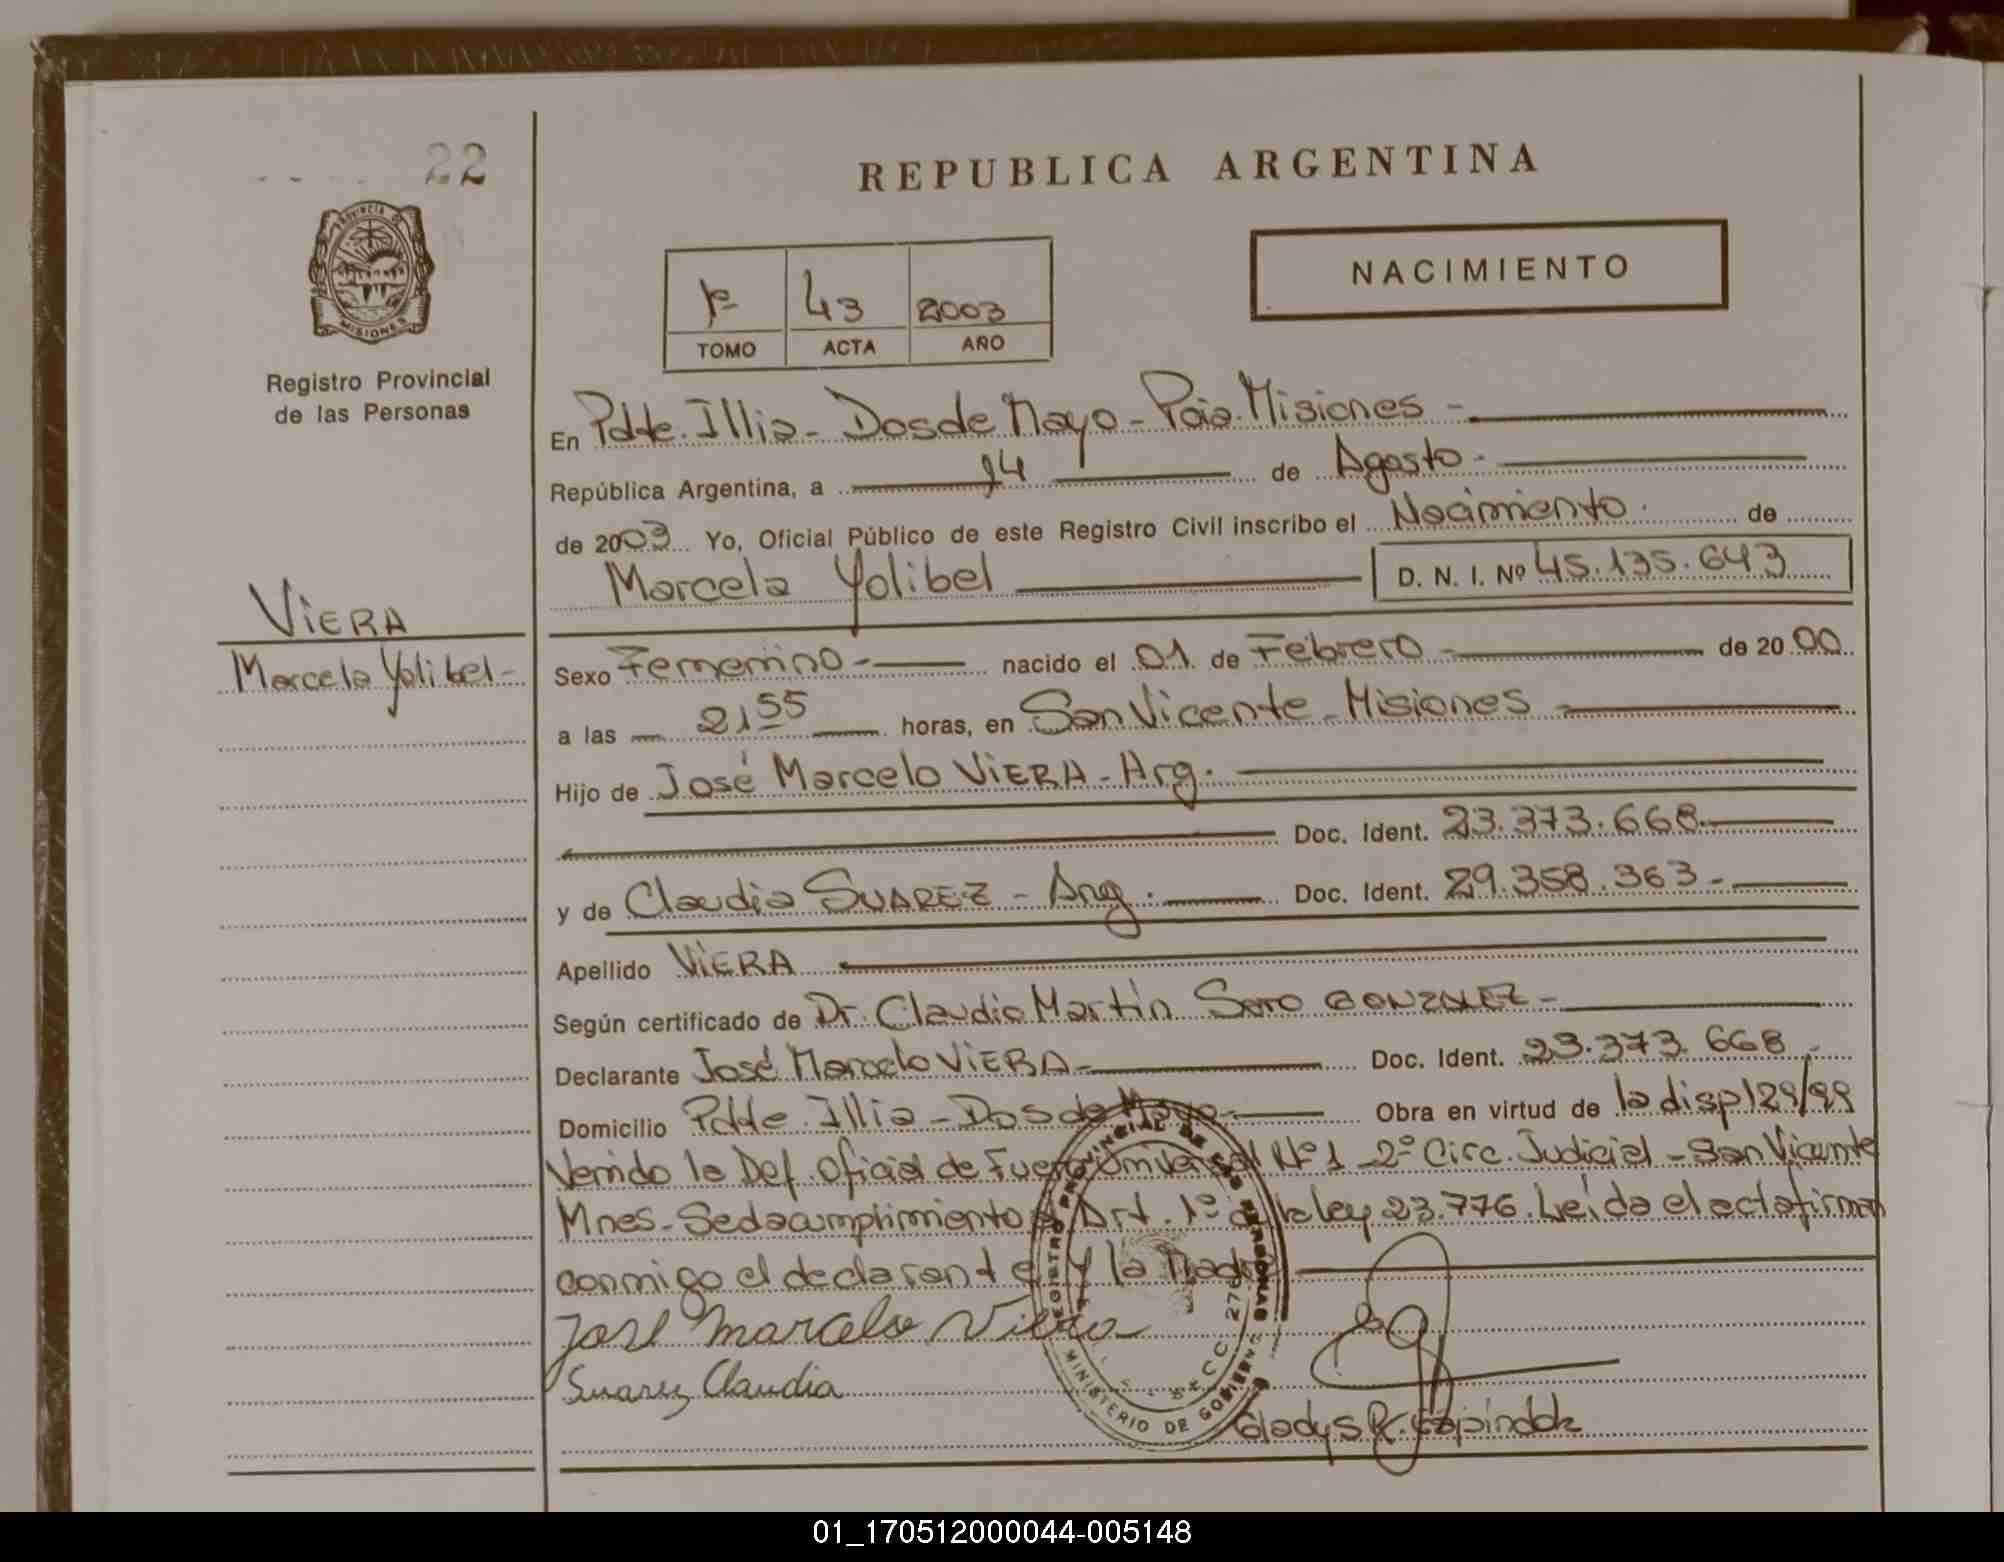 22
REPUBLICA ARGENTINA
NACIMIENTO
1º 43 2003
TOMO ACTA AÑO
Provincia de
MISIONES
Registro Provincial
de las Personas
En Pdte. Illia - Dos de Mayo - Pcia. Misiones -
República Argentina, a 14 de Agosto -
de 2003 Yo, Oficial Público de este Registro Civil inscribo el Nacimiento. de
Marcela Yolibel D. N. I. Nº 45.135.643
VIERA
Marcela Yolibel -
Sexo Femenino - nacido el 01 de Febrero - de 2000
a las 21 55 horas, en San Vicente - Misiones
Hijo de José Marcelo VIERA - Arg.
Doc. Ident. 23.373.668
y de Claudia SUAREZ - Arg. Doc. Ident. 29.358.363 -
Apellido VIERA
Según certificado de Dr. Claudio Martín Soto GONZALEZ -
Declarante José Marcelo VIERA - Doc. Ident. 23.373.668 -
Domicilio Pdte. Illia - Dos de Mayo - Obra en virtud de la disp 129/99
Venido la Def. Oficial de Fuero Universal Nº 1 - 2º Circ. Judicial - San Vicente
Mnes - Se da cumplimiento Art. 1º de la ley 23.776. Leída el acta firman
conmigo el declarante y la Madre
José Marcelo Viera
Suarez Claudia
REGISTRO PROVINCIAL DE LAS PERSONAS
MINISTERIO DE GOBIERNO
SECC 276
Gladys R.
01_170512000044-005148